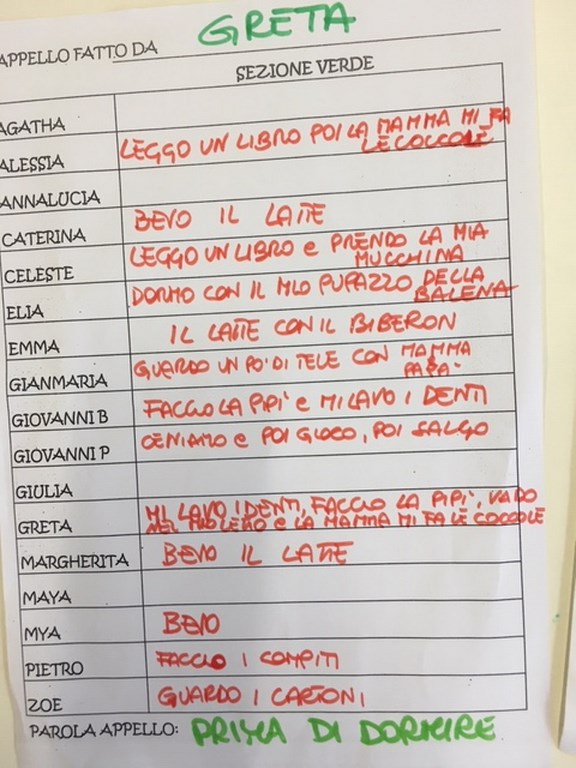 APPELLO FATTO DA GRETA
SEZIONE VERDE
AGATHA
ALESSIA LEGGO UN LIBRO POI LA MAMMA MI FA
LE COCCOLE
ANNALUCIA
CATERINA BEVO IL LATTE
CELESTE LEGGO UN LIBRO e PRENDO LA MIA
MUCCHINA
ELIA DORMO CON IL MIO PUPAZZO DELLA
BALENA
EMMA IL LATTE CON IL BIBERON
GIANMARIA GUARDO UN PO' DI TELE CON MAMMA
PAPA'
GIOVANNI B FACCIO LA PIPI' e MI LAVO I DENTI
GIOVANNI P CENIAMO e POI GIOCO, POI SALGO
GIULIA
GRETA MI LAVO I DENTI, FACCIO LA PIPI', VADO
NEL MIO LETTO e LA MAMMA MI FA LE COCCOLE
MARGHERITA BEVO IL LATTE
MAYA
MYA BEVO
PIETRO FACCIO I COMPITI
ZOE GUARDO I CARTONI
PAROLA APPELLO: PRIMA DI DORMIRE